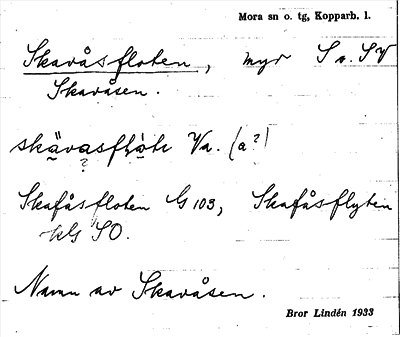 Mora sn o. tg, Kopparb. l.
Skavåsfloten, myr S o. SV
Skavåsen.
skävasflòtе Va. (a?)
?
Skafåsfloten G 103, Skafåsflyten
SO.
Namn av Skavåsen.
Bror Lindén 1933